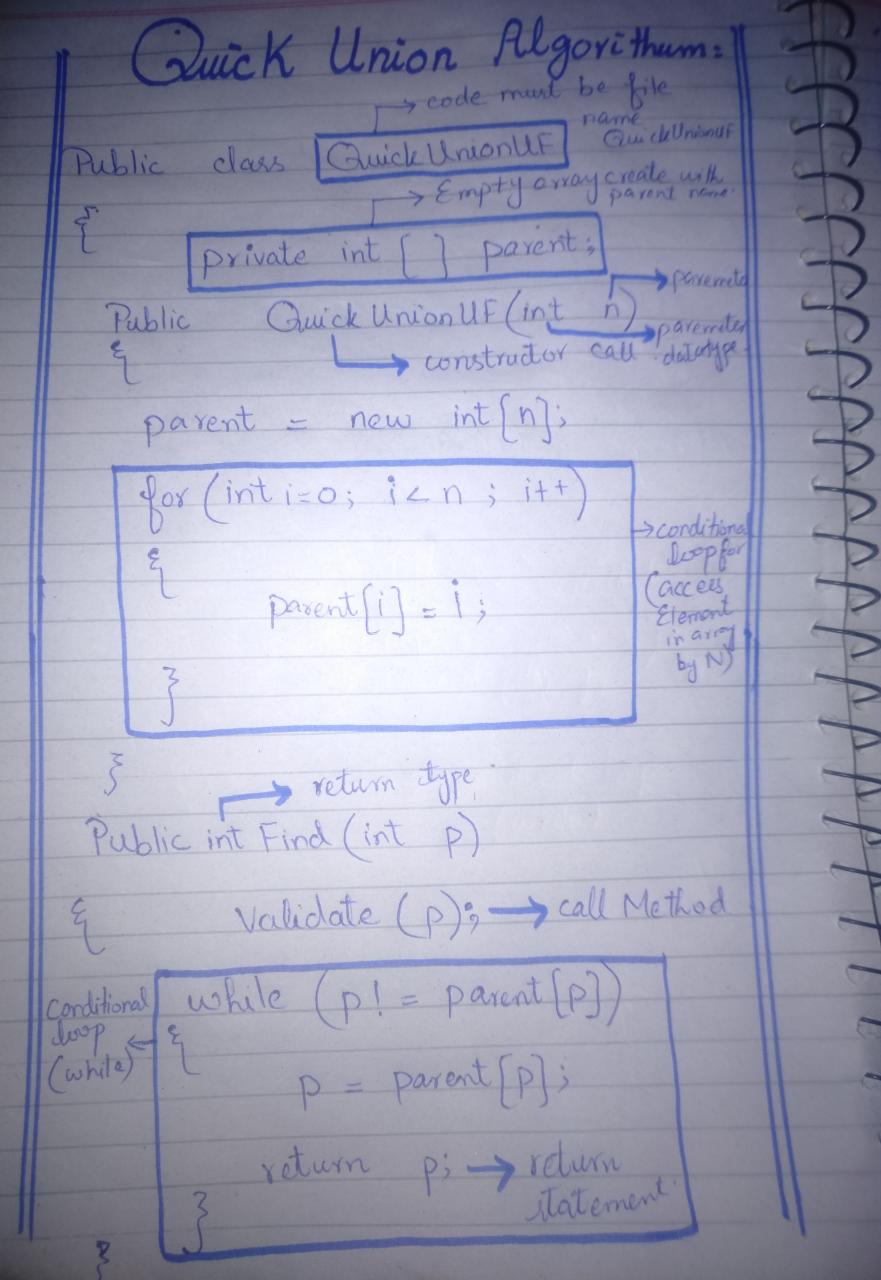 Quick Union Algorithum:
code must be file
name
QuickUnionUF
Public class QuickUnionUF
Empty array create with
parent name.
{
private int [ ] parent;
paremeter
Public QuickUnionUF (int n)
paremeter
datatype
{
constructor call
parent = new int [n];
for (int i=0; i<n; i++)
conditional
loop for
(access
Element
in array
by N)
{
parent[i] = i;
}
}
return type
Public int Find (int p)
{ Validate (p); call Method
Conditional
loop
(while)
while (p! = parent [p])
{
p = parent [p];
return p; return
statement
}
}